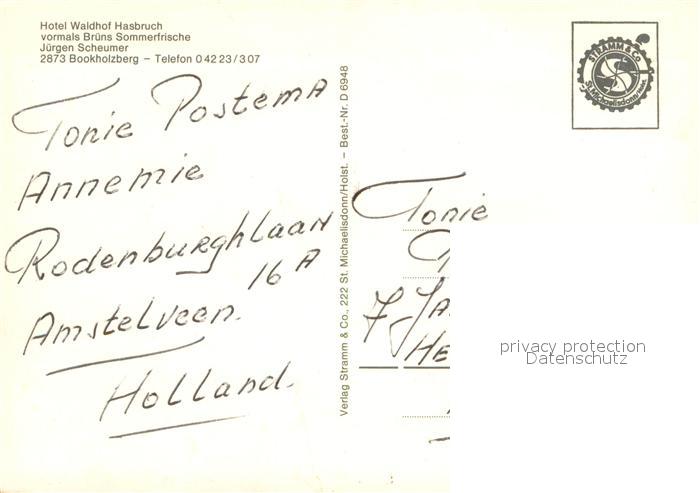 Hotel Waldhof Hasbruch
vormals Brüns Sommerfrische
Jürgen Scheumer
2873 Bookholzberg – Telefon 0 42 23 / 3 07
Tonie Postema
Annemie
Rodenburghlaan
16 A
Amstelveen.
Holland.
Verlag Stramm & Co., 222 St. Michaelisdonn/Holst. – Best.-Nr. D 6948
STRAMM & Co
St. Michaelisdonn/Holst.
Tonie
7-Ja
He
privacy protection
Datenschutz